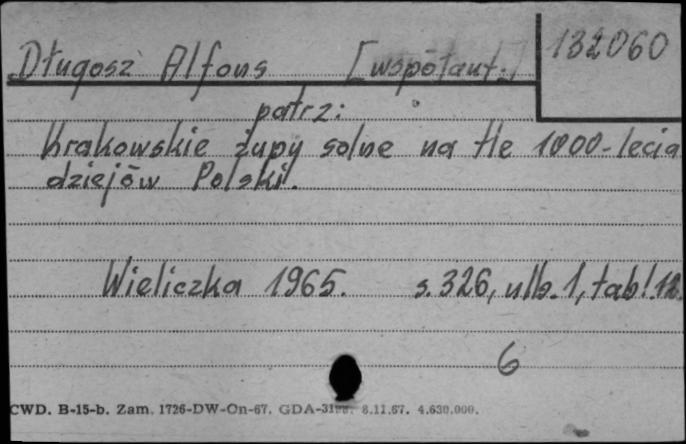 Długosz Alfons [współaut.] 132060
patrz:
Krakowskie żupy solne na tle 1000-lecia
dziejów Polski.
Wieliczka 1965. s. 326, ulb. 1, tabl. 12.
6
CWD. B-15-b. Zam. 1726-DW-On-67. GDA- 8.11.67. 4.630.000.